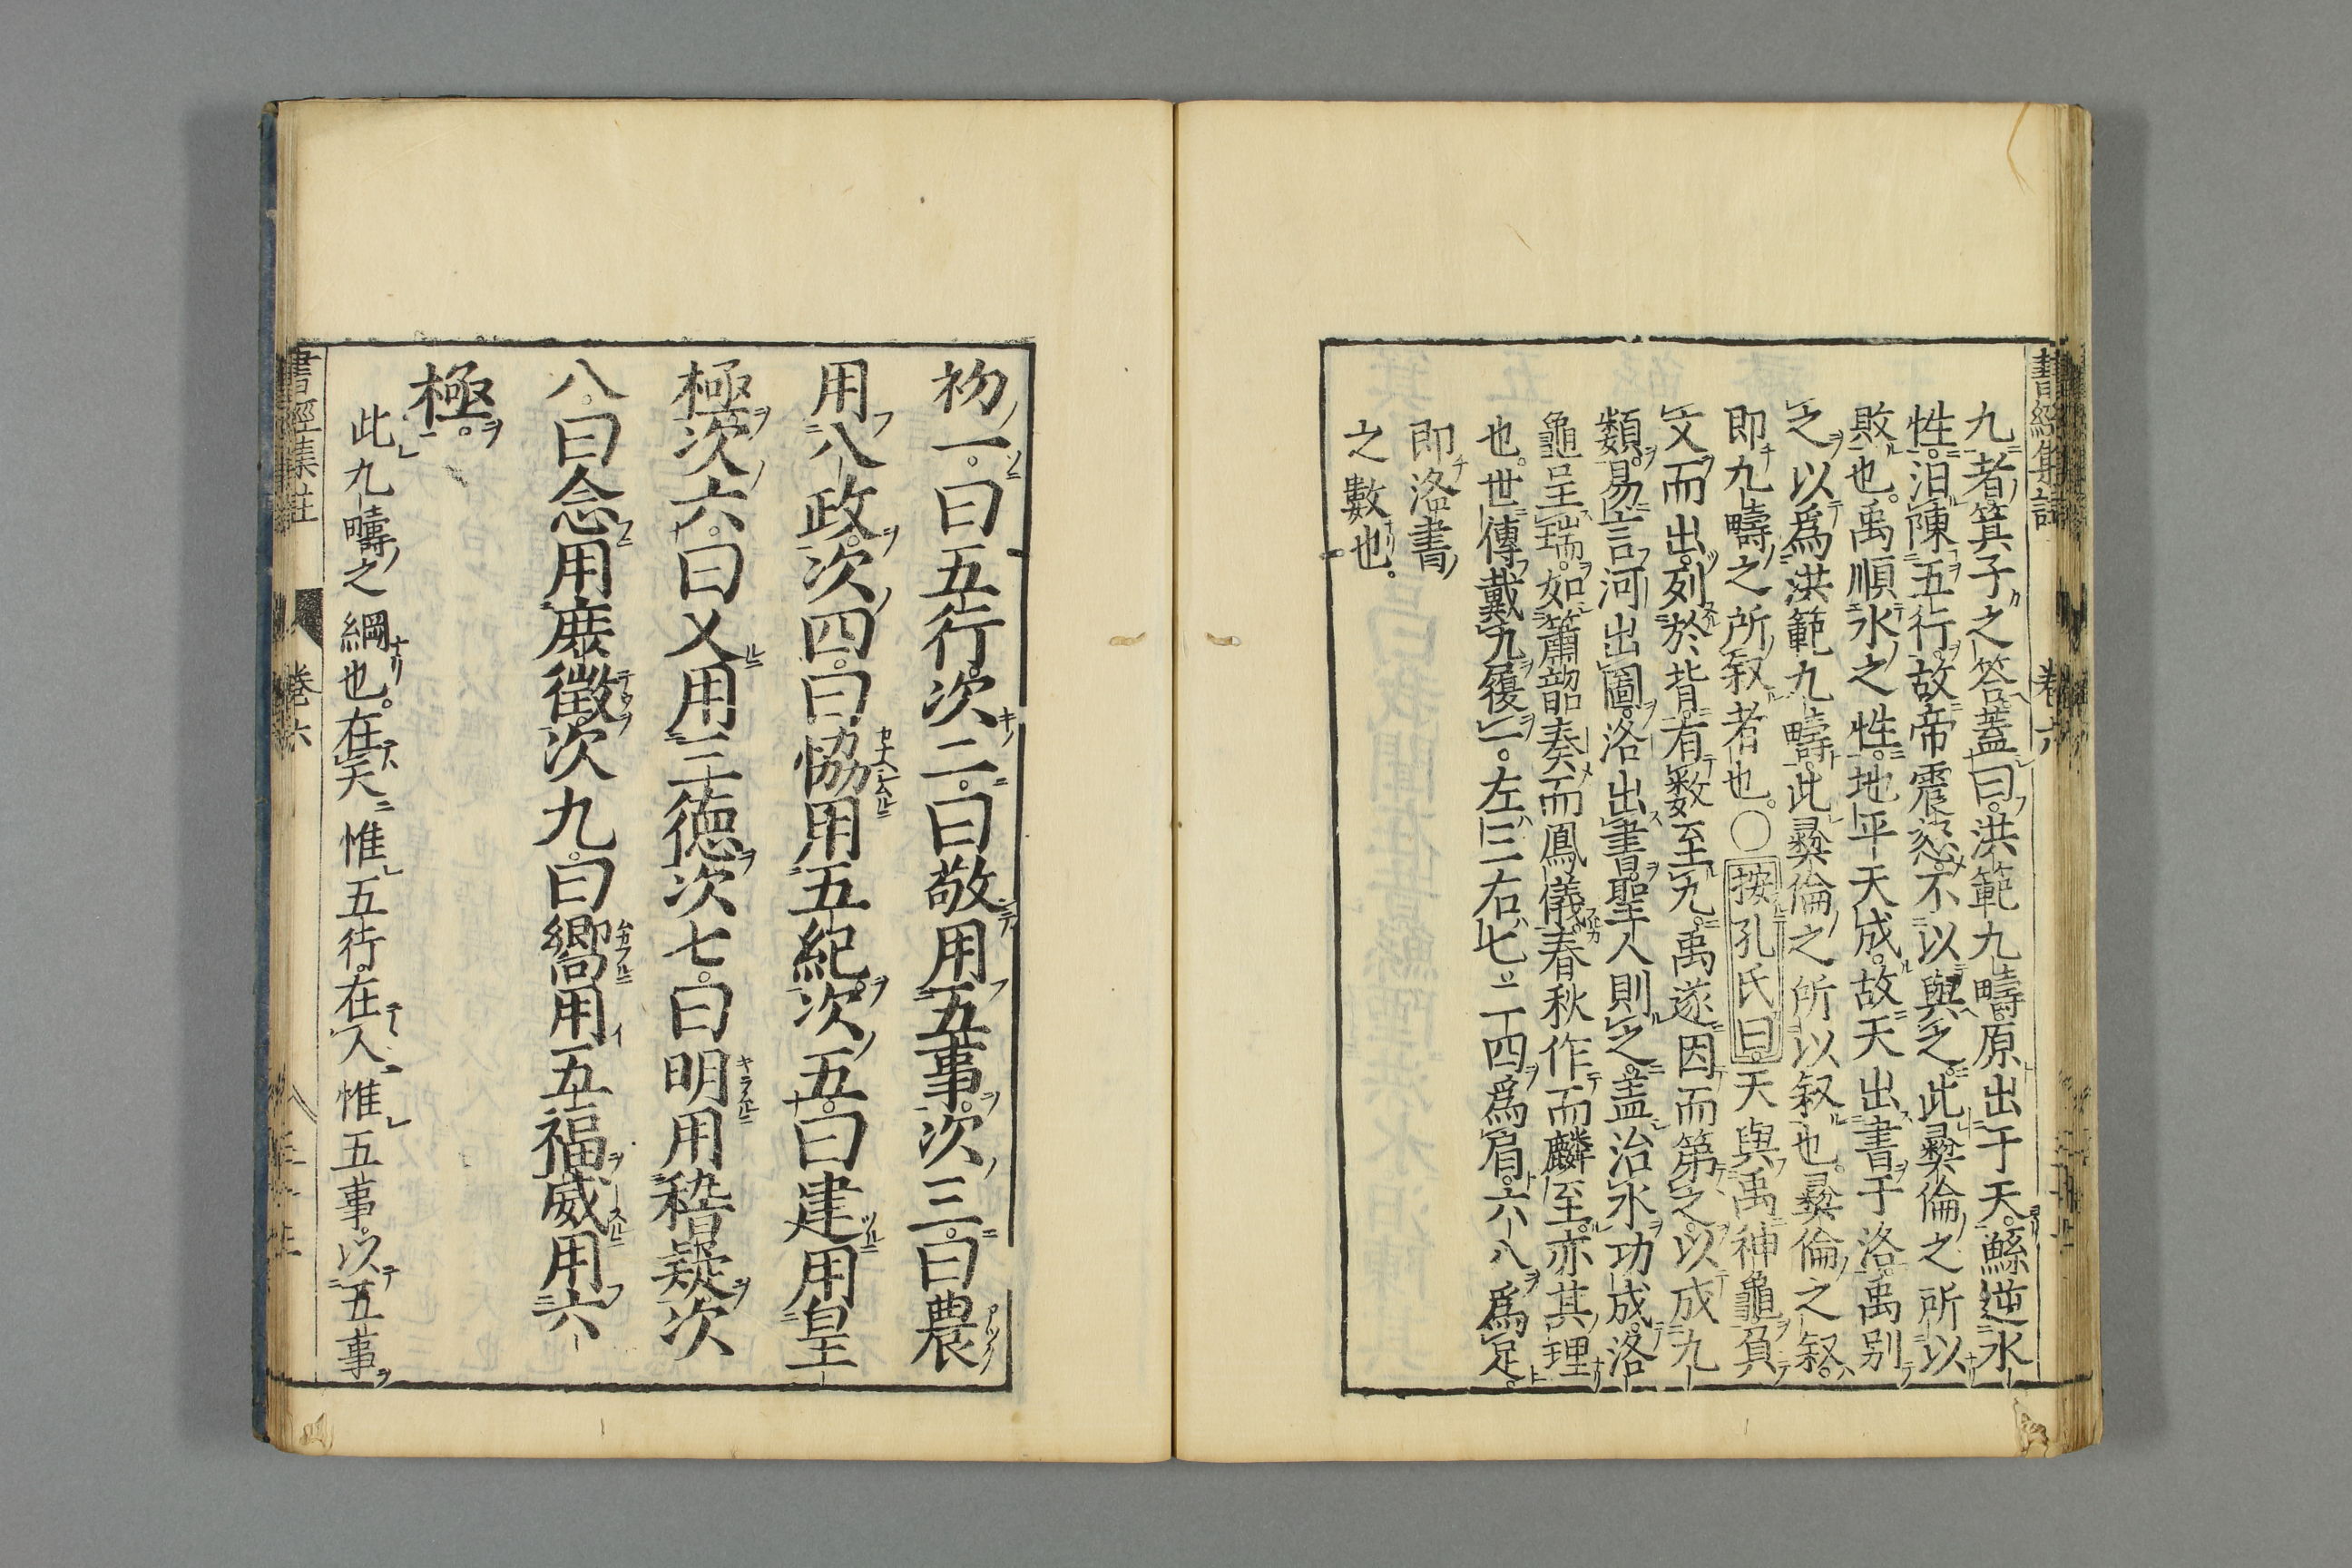 書經集註 卷六
九者箕子之答蓋曰洪範九疇原出于天鯀逆水
性汨陳五行故帝震怒不以與之此彝倫之所以
敗也禹順水之性地平天成故天出書于洛禹別
之以爲洪範九疇此彝倫之所以叙也彝倫之叙
即九疇之所叙者也〇按孔氏曰天與禹神龜負
文而出列於背有數至九禹遂因而第之以成九
類易言河出圖洛出書聖人則之盖治水功成洛
龜呈瑞如簫韶奏而鳳儀春秋作而麟至亦其理
也世傳戴九履一左三右七二四爲肩六八爲足
即洛書
之數也
初一曰五行次二曰敬用五事次三曰農
用八政次四曰恊用五紀次五曰建用皇
極次六曰乂用三德次七曰明用稽疑次
八曰念用庶徵次九曰嚮用五福威用六
極
此九疇之綱也在天惟五行在人惟五事以五事
書經集註 卷六